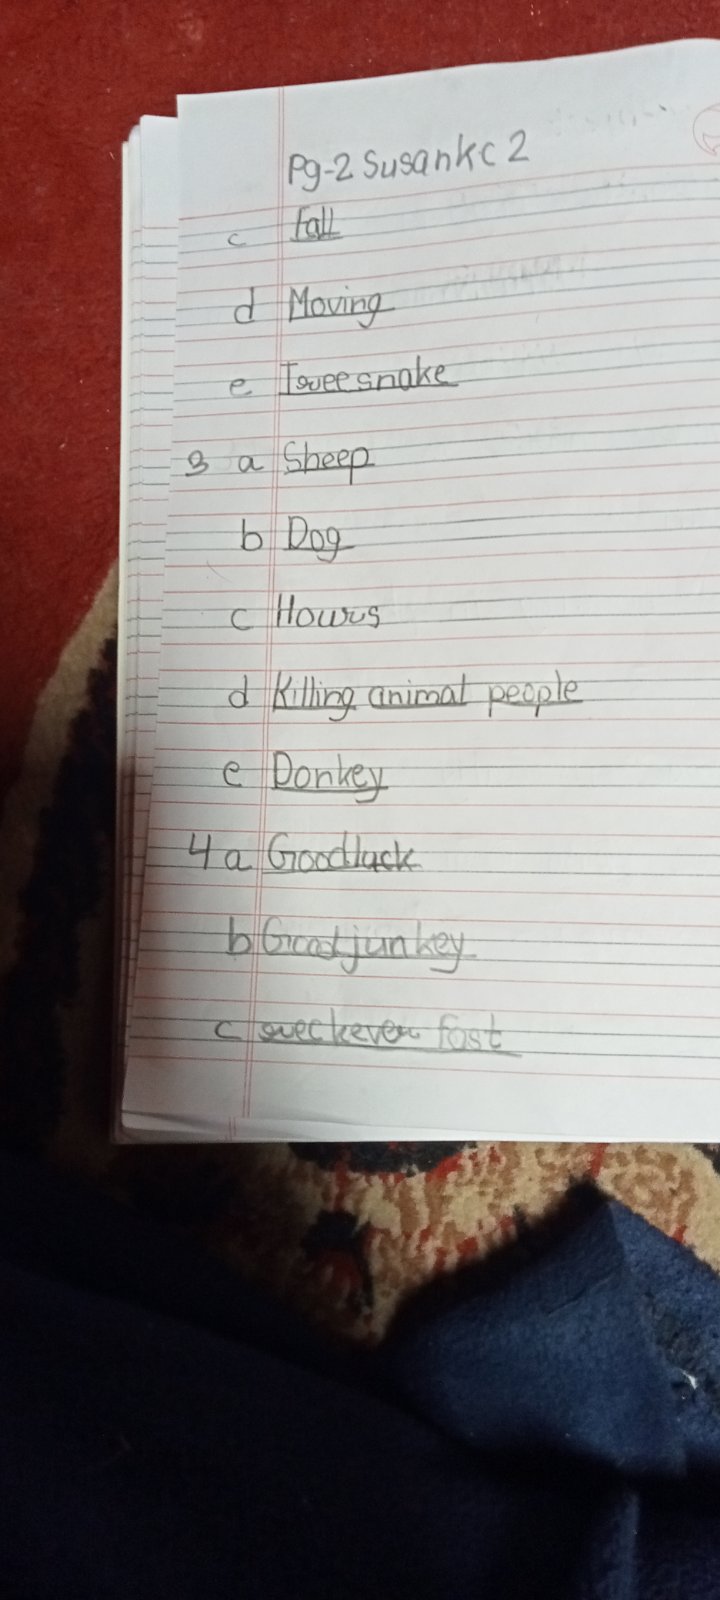 Pg-2 Susankc 2
c Fall
d Moving
e snake
3 a Sheep
b Dog
c Hours
d Killing animal people
e Donkey
4 a Goodluck
b Good junkey
c fast